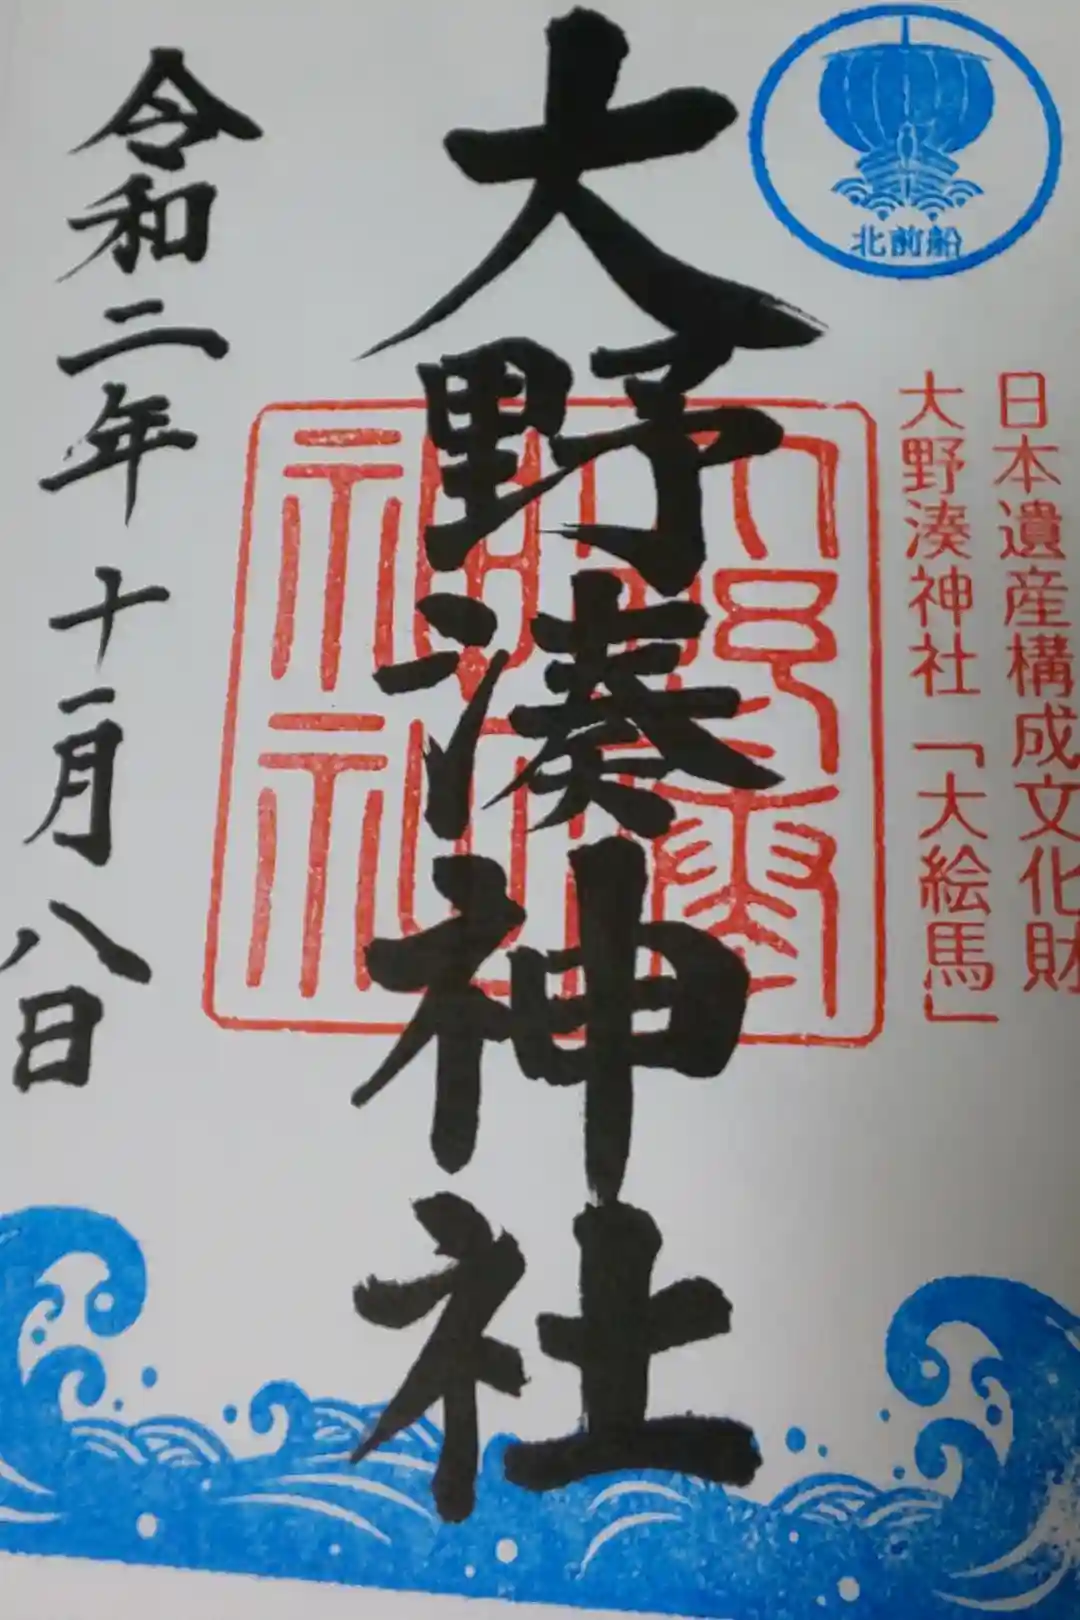 北前船
日本遺産構成文化財
大野湊神社「大絵馬」
大野湊神社
令和二年十一月八日